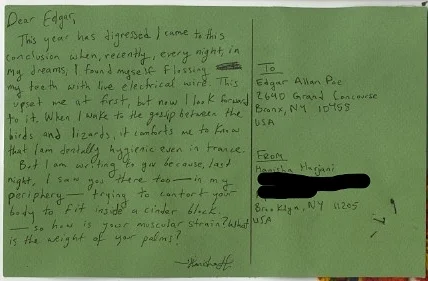 Dear Edgar,
This year has digressed. I came to this
conclusion when, recently, every night, in
my dreams, I found myself flossing
my teeth with live electrical wire. This
upset me at first, but now I look forward
to it. When I wake to the gossip between the
birds and lizards, it comforts me to know
that I am dentally hygienic even in trance.
But I am writing to you because, last
night, I saw you there too — in my
periphery — trying to contort your
body to fit inside a cinder block.
— so how is your muscular strain? What
is the weight of your palms?
To
Edgar Allan Poe
2640 Grand Concourse
Bronx, NY 10458
USA
From
Manisha Harjani
Brooklyn, NY 11205
USA